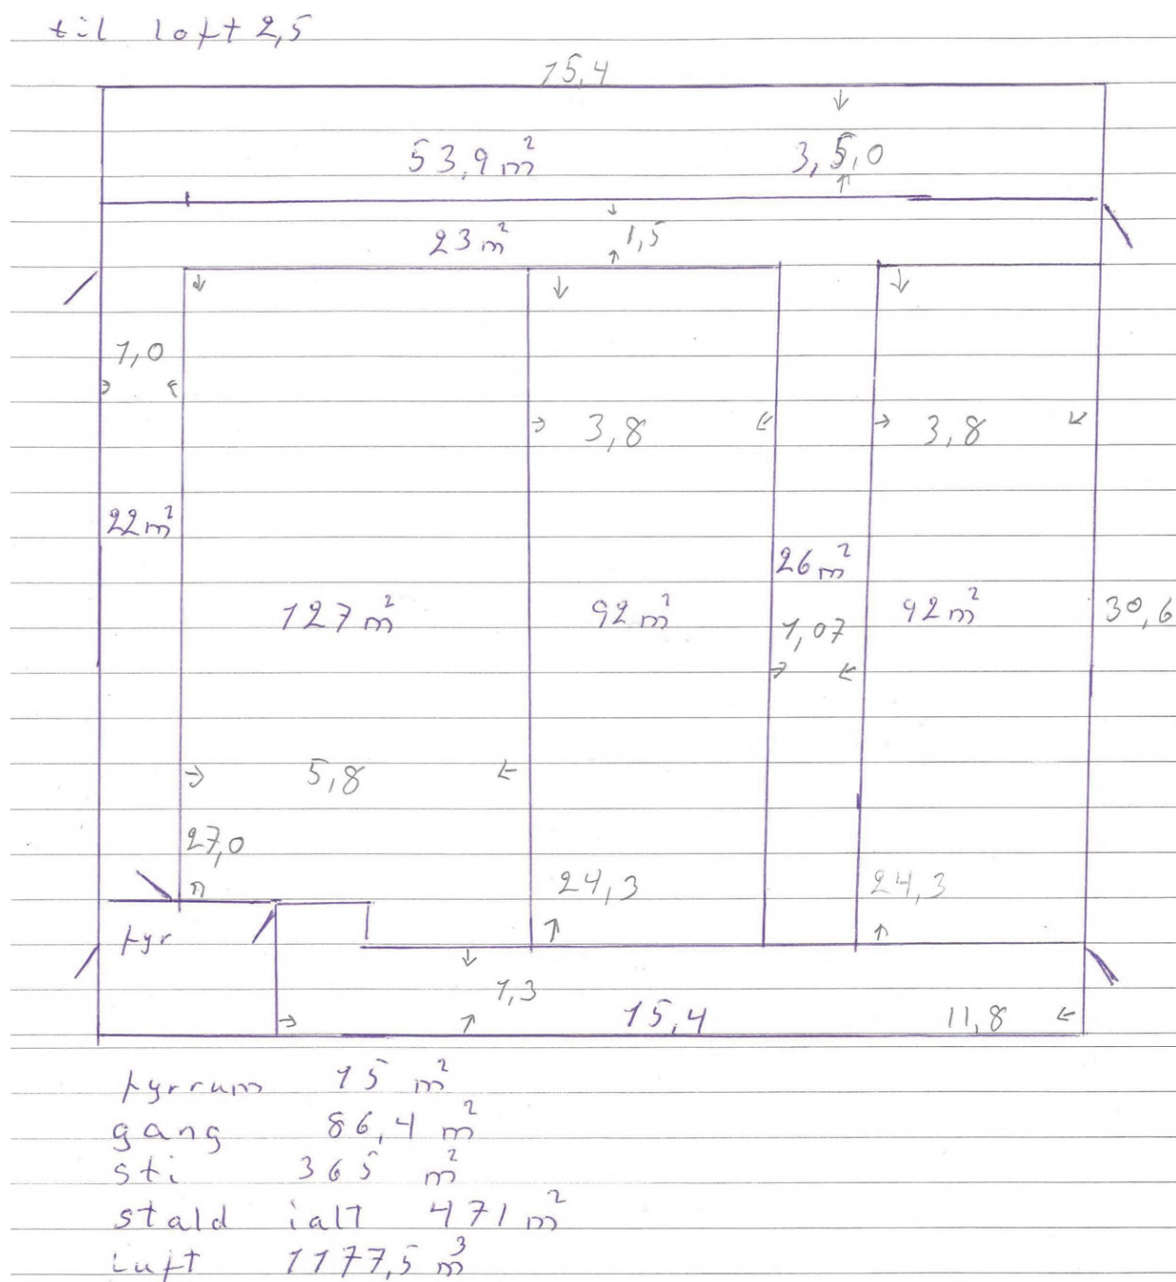 til loft 2,5
15,4
53,9 m²
3,5,0
23 m²
1,5
1,0
3,8
3,8
22 m²
26 m²
127 m²
92 m²
92 m²
30,6
1,07
5,8
27,0
24,3
24,3
fyr
1,3
15,4
11,8
fyrrum 15 m²
gang 86,4 m²
sti 365 m²
stald ialt 471 m²
Luft 1177,5 m³